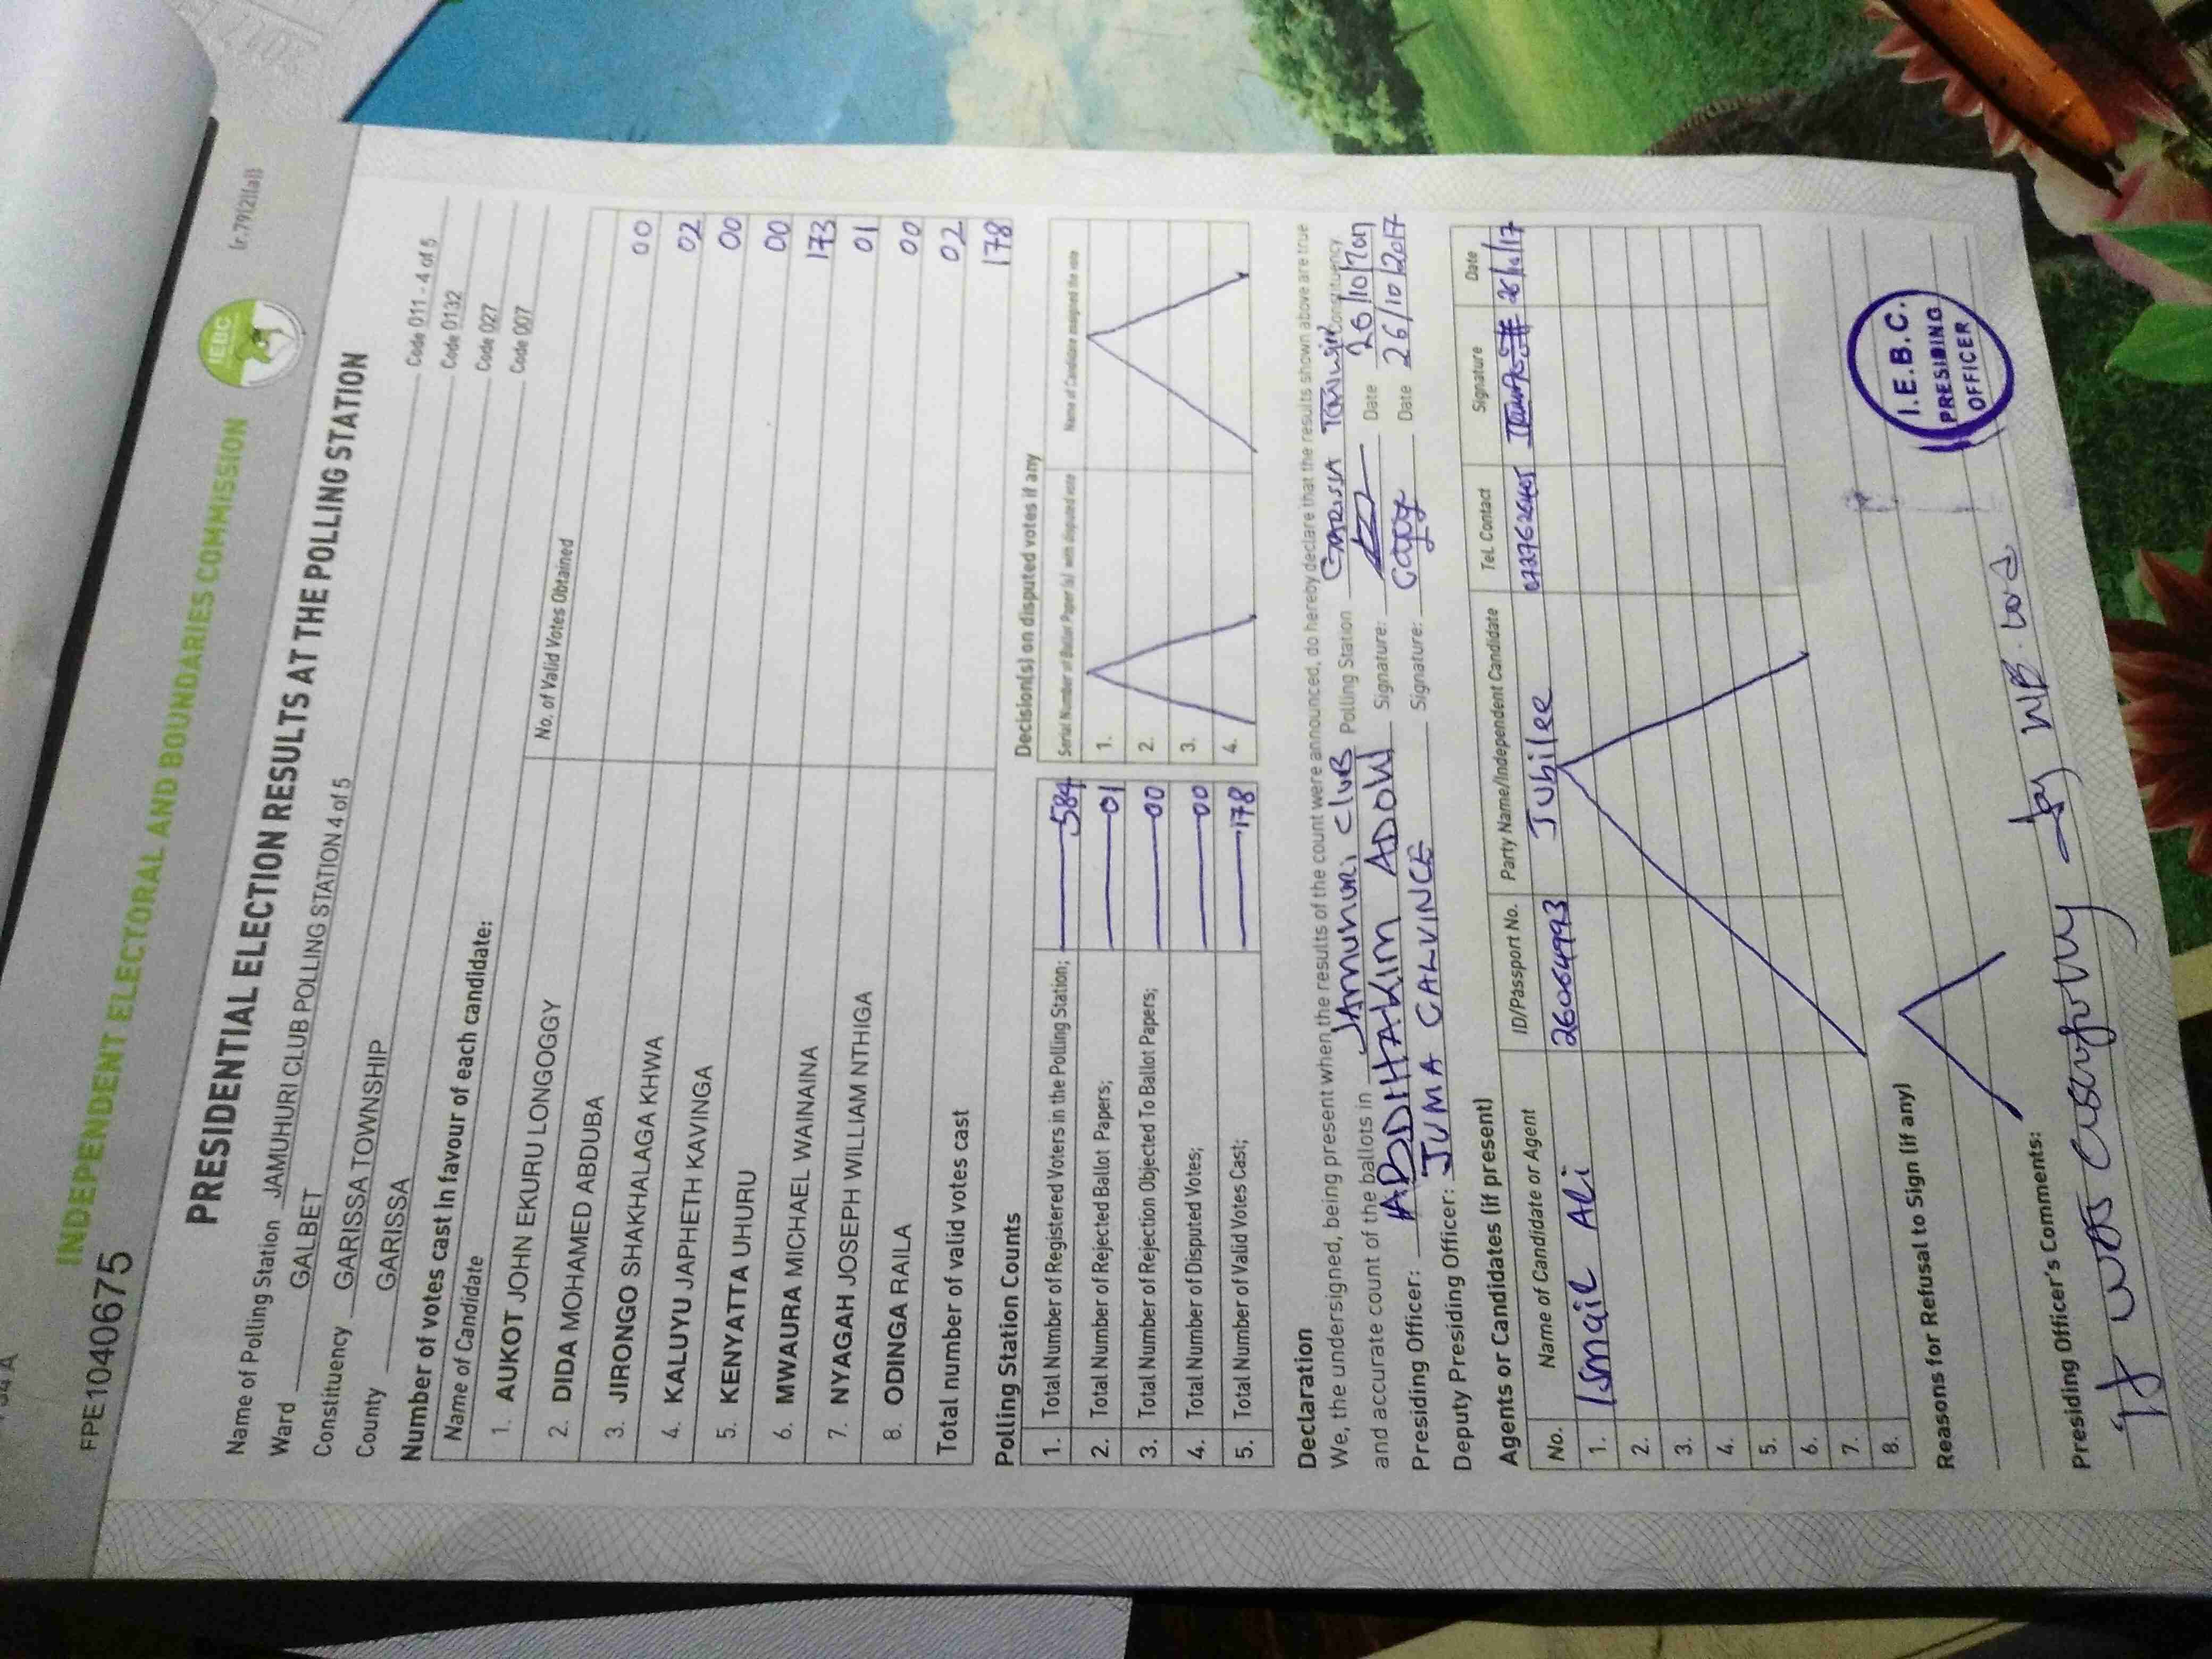 34A
FPE1040675
INDEPENDENT ELECTORAL AND BOUNDARIES COMMISSION
IEBC
(r.79(2)(a))
PRESIDENTIAL ELECTION RESULTS AT THE POLLING STATION
Name of Polling Station JAMUHURI CLUB POLLING STATION 4 of 5 Code 011 - 4 of 5
Ward GALBET Code 0132
Constituency GARISSA TOWNSHIP Code 027
County GARISSA Code 007
Number of votes cast in favour of each candidate:
Name of Candidate No. of Valid Votes Obtained
1. AUKOT JOHN EKURU LONGOGGY 00
2. DIDA MOHAMED ABDUBA 02
3. JIRONGO SHAKHALAGA KHWA 00
4. KALUYU JAPHETH KAVINGA 00
5. KENYATTA UHURU 173
6. MWAURA MICHAEL WAINAINA 01
7. NYAGAH JOSEPH WILLIAM NTHIGA 00
8. ODINGA RAILA 02
Total number of valid votes cast 178
Polling Station Counts
1. Total Number of Registered Voters in the Polling Station; 584
2. Total Number of Rejected Ballot Papers; 01
3. Total Number of Rejection Objected To Ballot Papers; 00
4. Total Number of Disputed Votes; 00
5. Total Number of Valid Votes Cast; 178
Decision(s) on disputed votes if any
Serial Number of Ballot Paper (s) with disputed vote Name of Candidate assigned the vote
1.
2.
3.
4.
Declaration
We, the undersigned, being present when the results of the count were announced, do hereby declare that the results shown above are true
and accurate count of the ballots in JAMUHURI CLUB Polling Station GARISSA TOWNSHIP Constituency.
Presiding Officer: ABDIHAKIM ADOW Signature: Date 26/10/2017
Deputy Presiding Officer: JUMA CALVINCE Signature: Date 26/10/2017
Agents or Candidates (if present)
No. Name of Candidate or Agent ID/Passport No. Party Name/Independent Candidate Tel. Contact Signature Date
1. Ismail Ali 26064993 Jubilee 26/10/17
2.
3.
4.
5.
6.
7.
8.
Reasons for Refusal to Sign (if any)
Presiding Officer's Comments:
It was
I.E.B.C.
PRESIDING
OFFICER